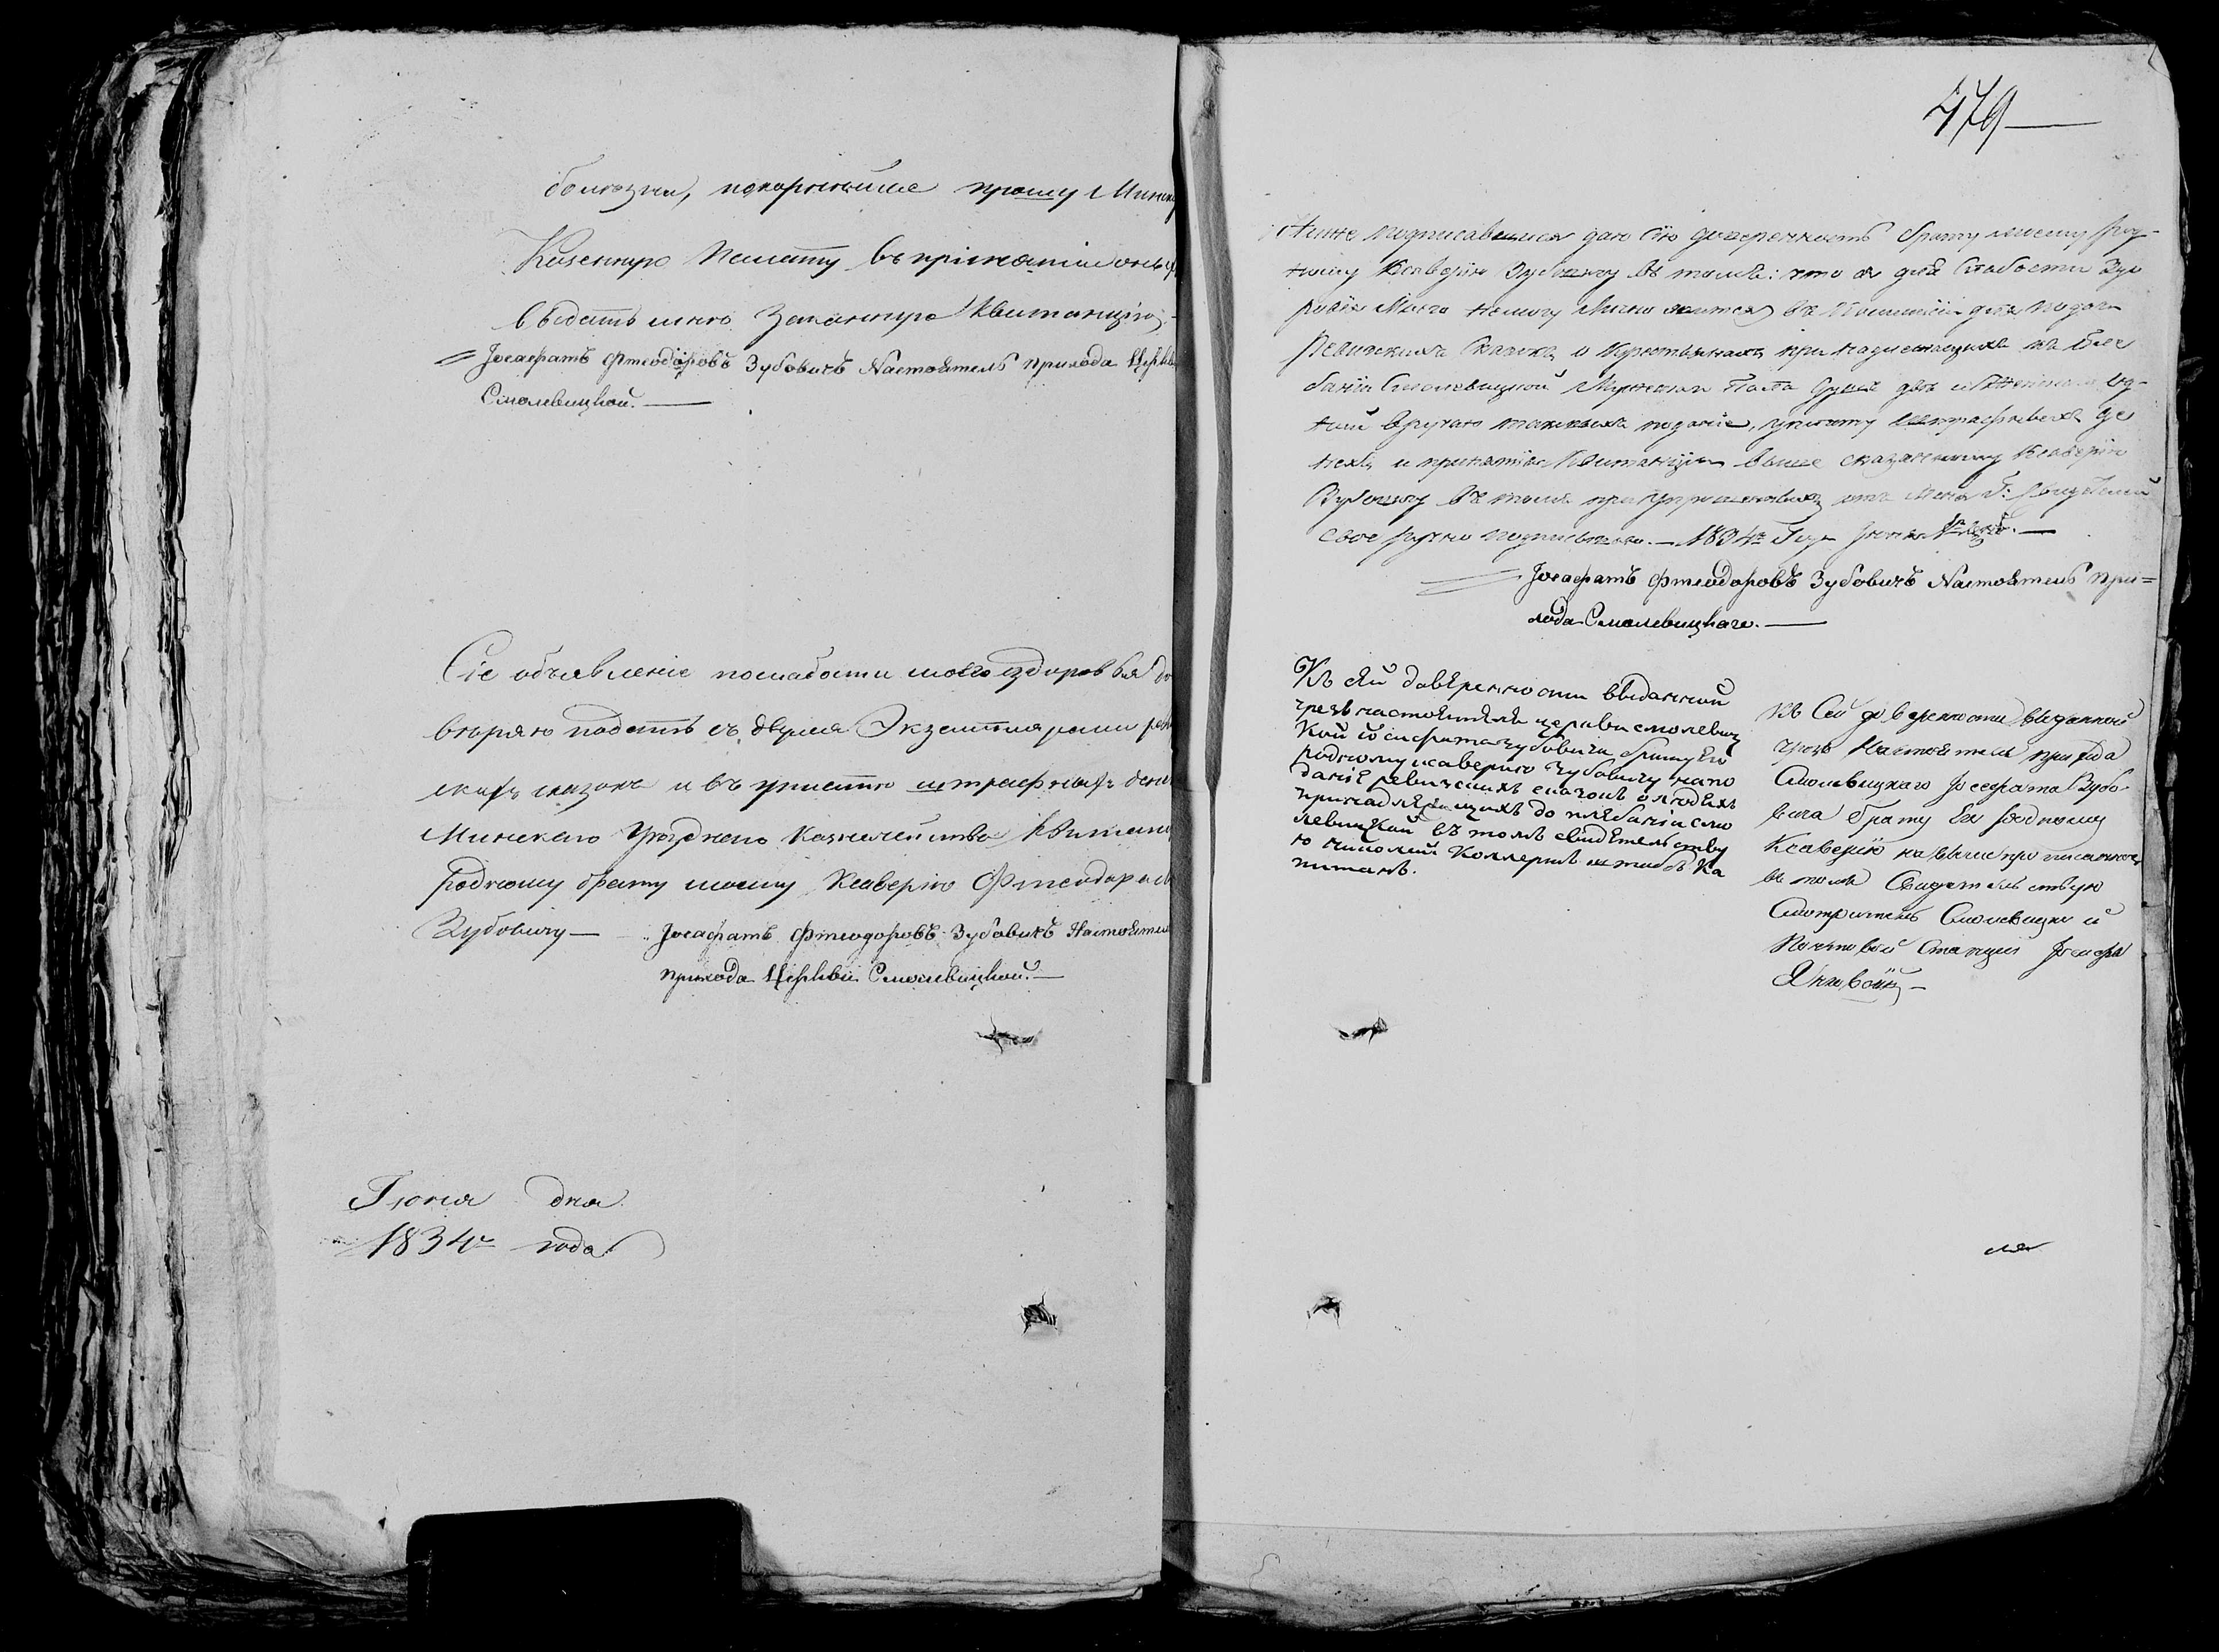 болѣзни, покорнѣйше прошу Минск
Казенную Палату въ принятіи оныхъ
выдать мнѣ Законную Квитанцію.
Іосафатъ Фтеодоровъ Зубовичъ Настоятель прихода Церкви
Смолевицкой.
Сіе объявленіе по слабости моего здоровья до
вѣряю подать съ двумя Экземплярами рев
скихъ сказокъ и въ уплатѣ штрафныхъ ден
Минскаго Уѣзднаго Казначейства Квитанц
родному брату моему Ксаверію Фтеодоров
Зубовичу — Іосафатъ Фтеодоровъ Зубовичъ Настоятель
прихода Церкви Смолевицкой.
Іюня дня
1834го года
479
Ниже подписавшися даю сію довѐренность брату моему род-
ному Ксаверію Зубовичу въ томъ: что я для слабости здо
ровья моего немогу лично явится въ для подачи
Ревизскихъ Сказокъ о Крестьянахъ принадлежащихъ къ Пле
баніи Смолевицкой Мужеска Пола душъ двѣ и Женска од-
ной вручаю таковыхъ подачіе, уплату штрафныхъ де
негъ и принятія Квитанціи выше сказанному Ксаверію
Зубовичу въ томъ при упрошенныхъ отъ меня Г: свидѣтелей
свое ручно подписываю. — 1834го Года Іюня
Іосафатъ Фтеодоровъ Зубовичъ Настоятель при=
хода Смолевицкаго.
Къ сей довѣренности выданной
чрезъ настоятеля церкви смолевиц
кой іосафата зубовича брату Его
родному ксаверію зубовичу на по
даніе ревизскихъ сказокъ о людяхъ
принадлежащихъ до плебаніи смо
левицкой въ томъ свидѣтельству
ю николай Коллернъ штабсъ Ка
питанъ.
Къ сей доверенности выданной
чрезъ Настоятеля прихода
Смолевицкаго Іосафата Зубо-
вича брату Ея родному
Ксаверію на выше прописанное
въ томъ Свидетельствую
Смотритель Смолевицкой
Почтовой Станціи Іосифъ